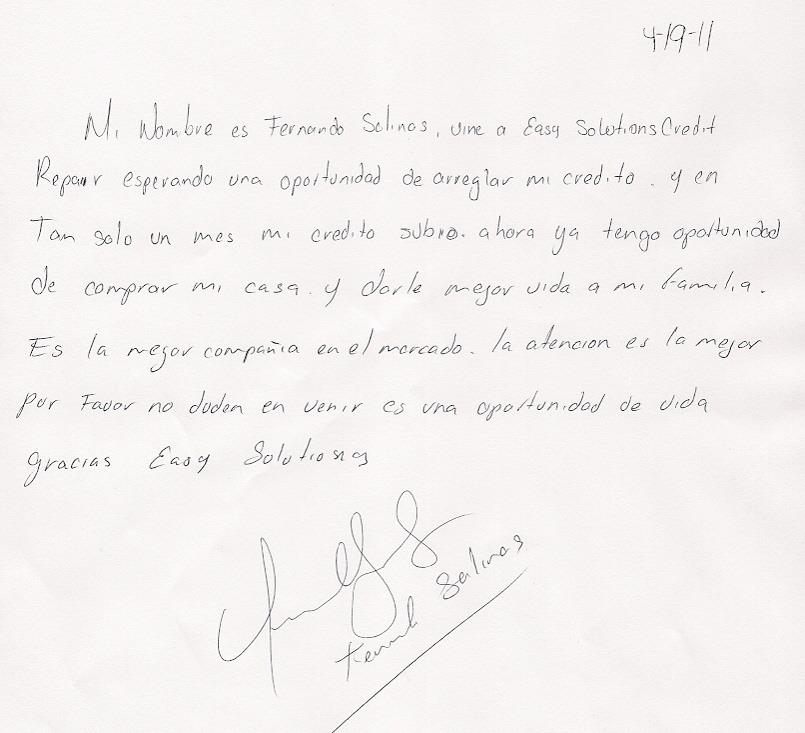 4-19-11
Mi Nombre es Fernando Salinas, vine a Easy Solutions Credit
Repair esperando una oportunidad de arreglar mi credito. y en
Tan solo un mes mi credito subio. ahora ya tengo oportunidad
de comprar mi casa. y darle mejor vida a mi familia.
Es la mejor compañia en el mercado. la atencion es la mejor
por Favor no duden en venir es una oportunidad de vida
gracias Easy Solutions
Salinas